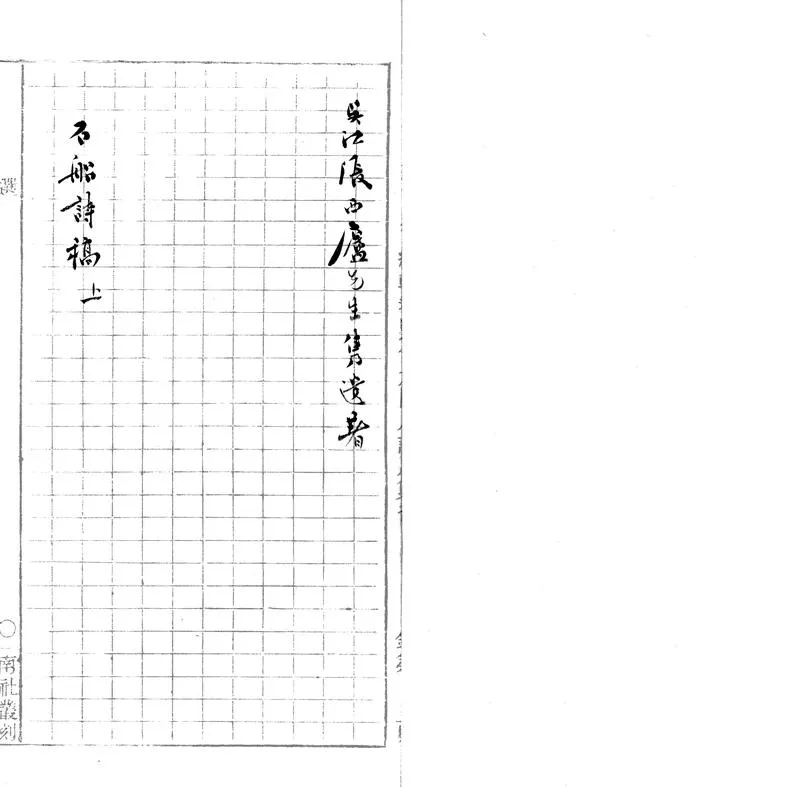 吳江張西廬先生雋遺著
石船詩稿 上
選
南社叢刻